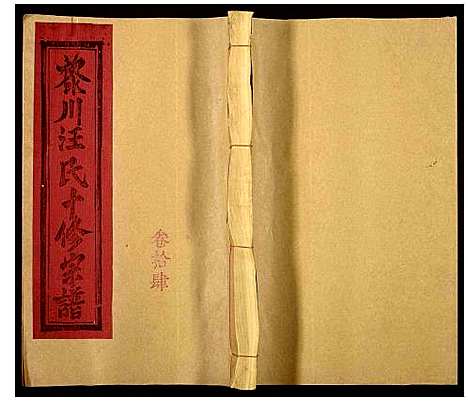 藜川汪氏十修宗譜
卷拾肆